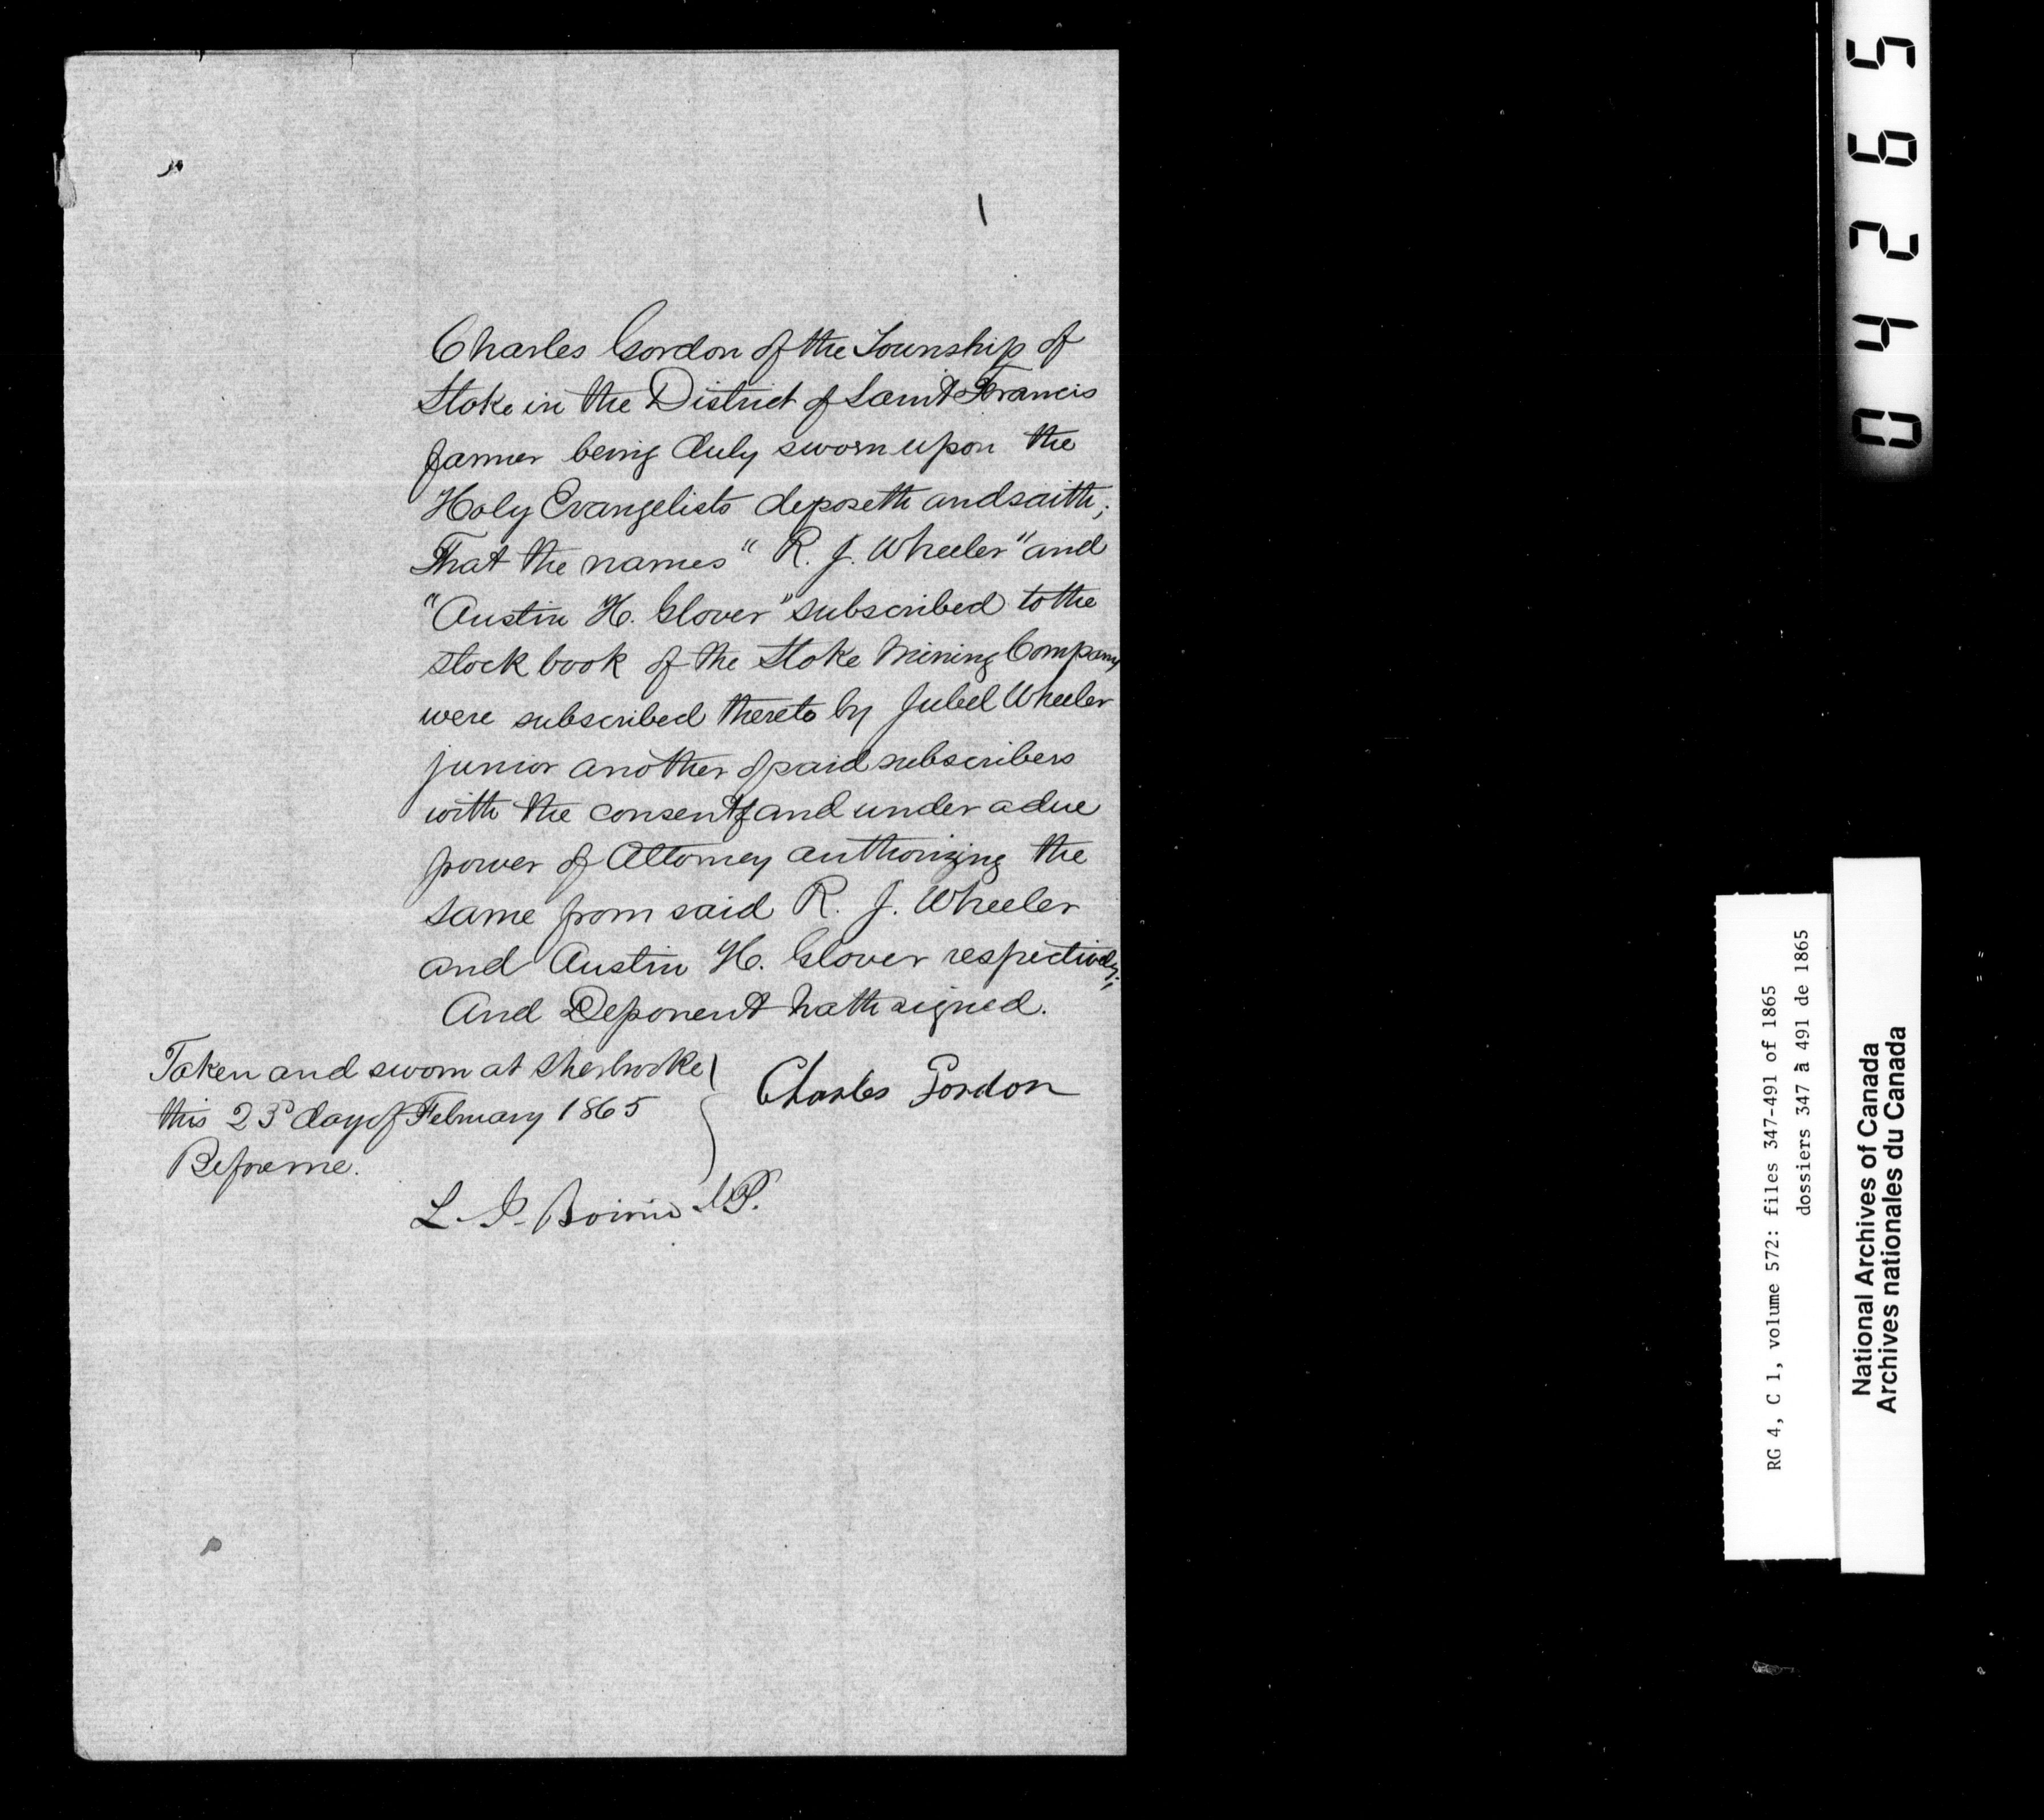 Charles Gordon of the Township of
Stoke in the District of Saint Francis
farmer being duly sworn upon the
Holy Evangelists deposeth and saith;
That the names "R. J. Wheeler" and
"Austin H. Glover" subscribed to the
stock book of the Stoke Mining Company
were subscribed thereto by Jubel Wheeler
junior another of said subscribers
with the consent and under a due
power of Attorney authorizing the
same from said R. J. Wheeler
and Austin H. Glover respectively;
And Deponent hath signed.
Taken and sworn at Sherbrooke
this 23d day of February 1865
Before me.
Charles Gordon
L. P. J.P.
04265
RG 4, C 1, volume 572: files 347-491 of 1865
dossiers 347 à 491 de 1865
National Archives of Canada
Archives nationales du Canada